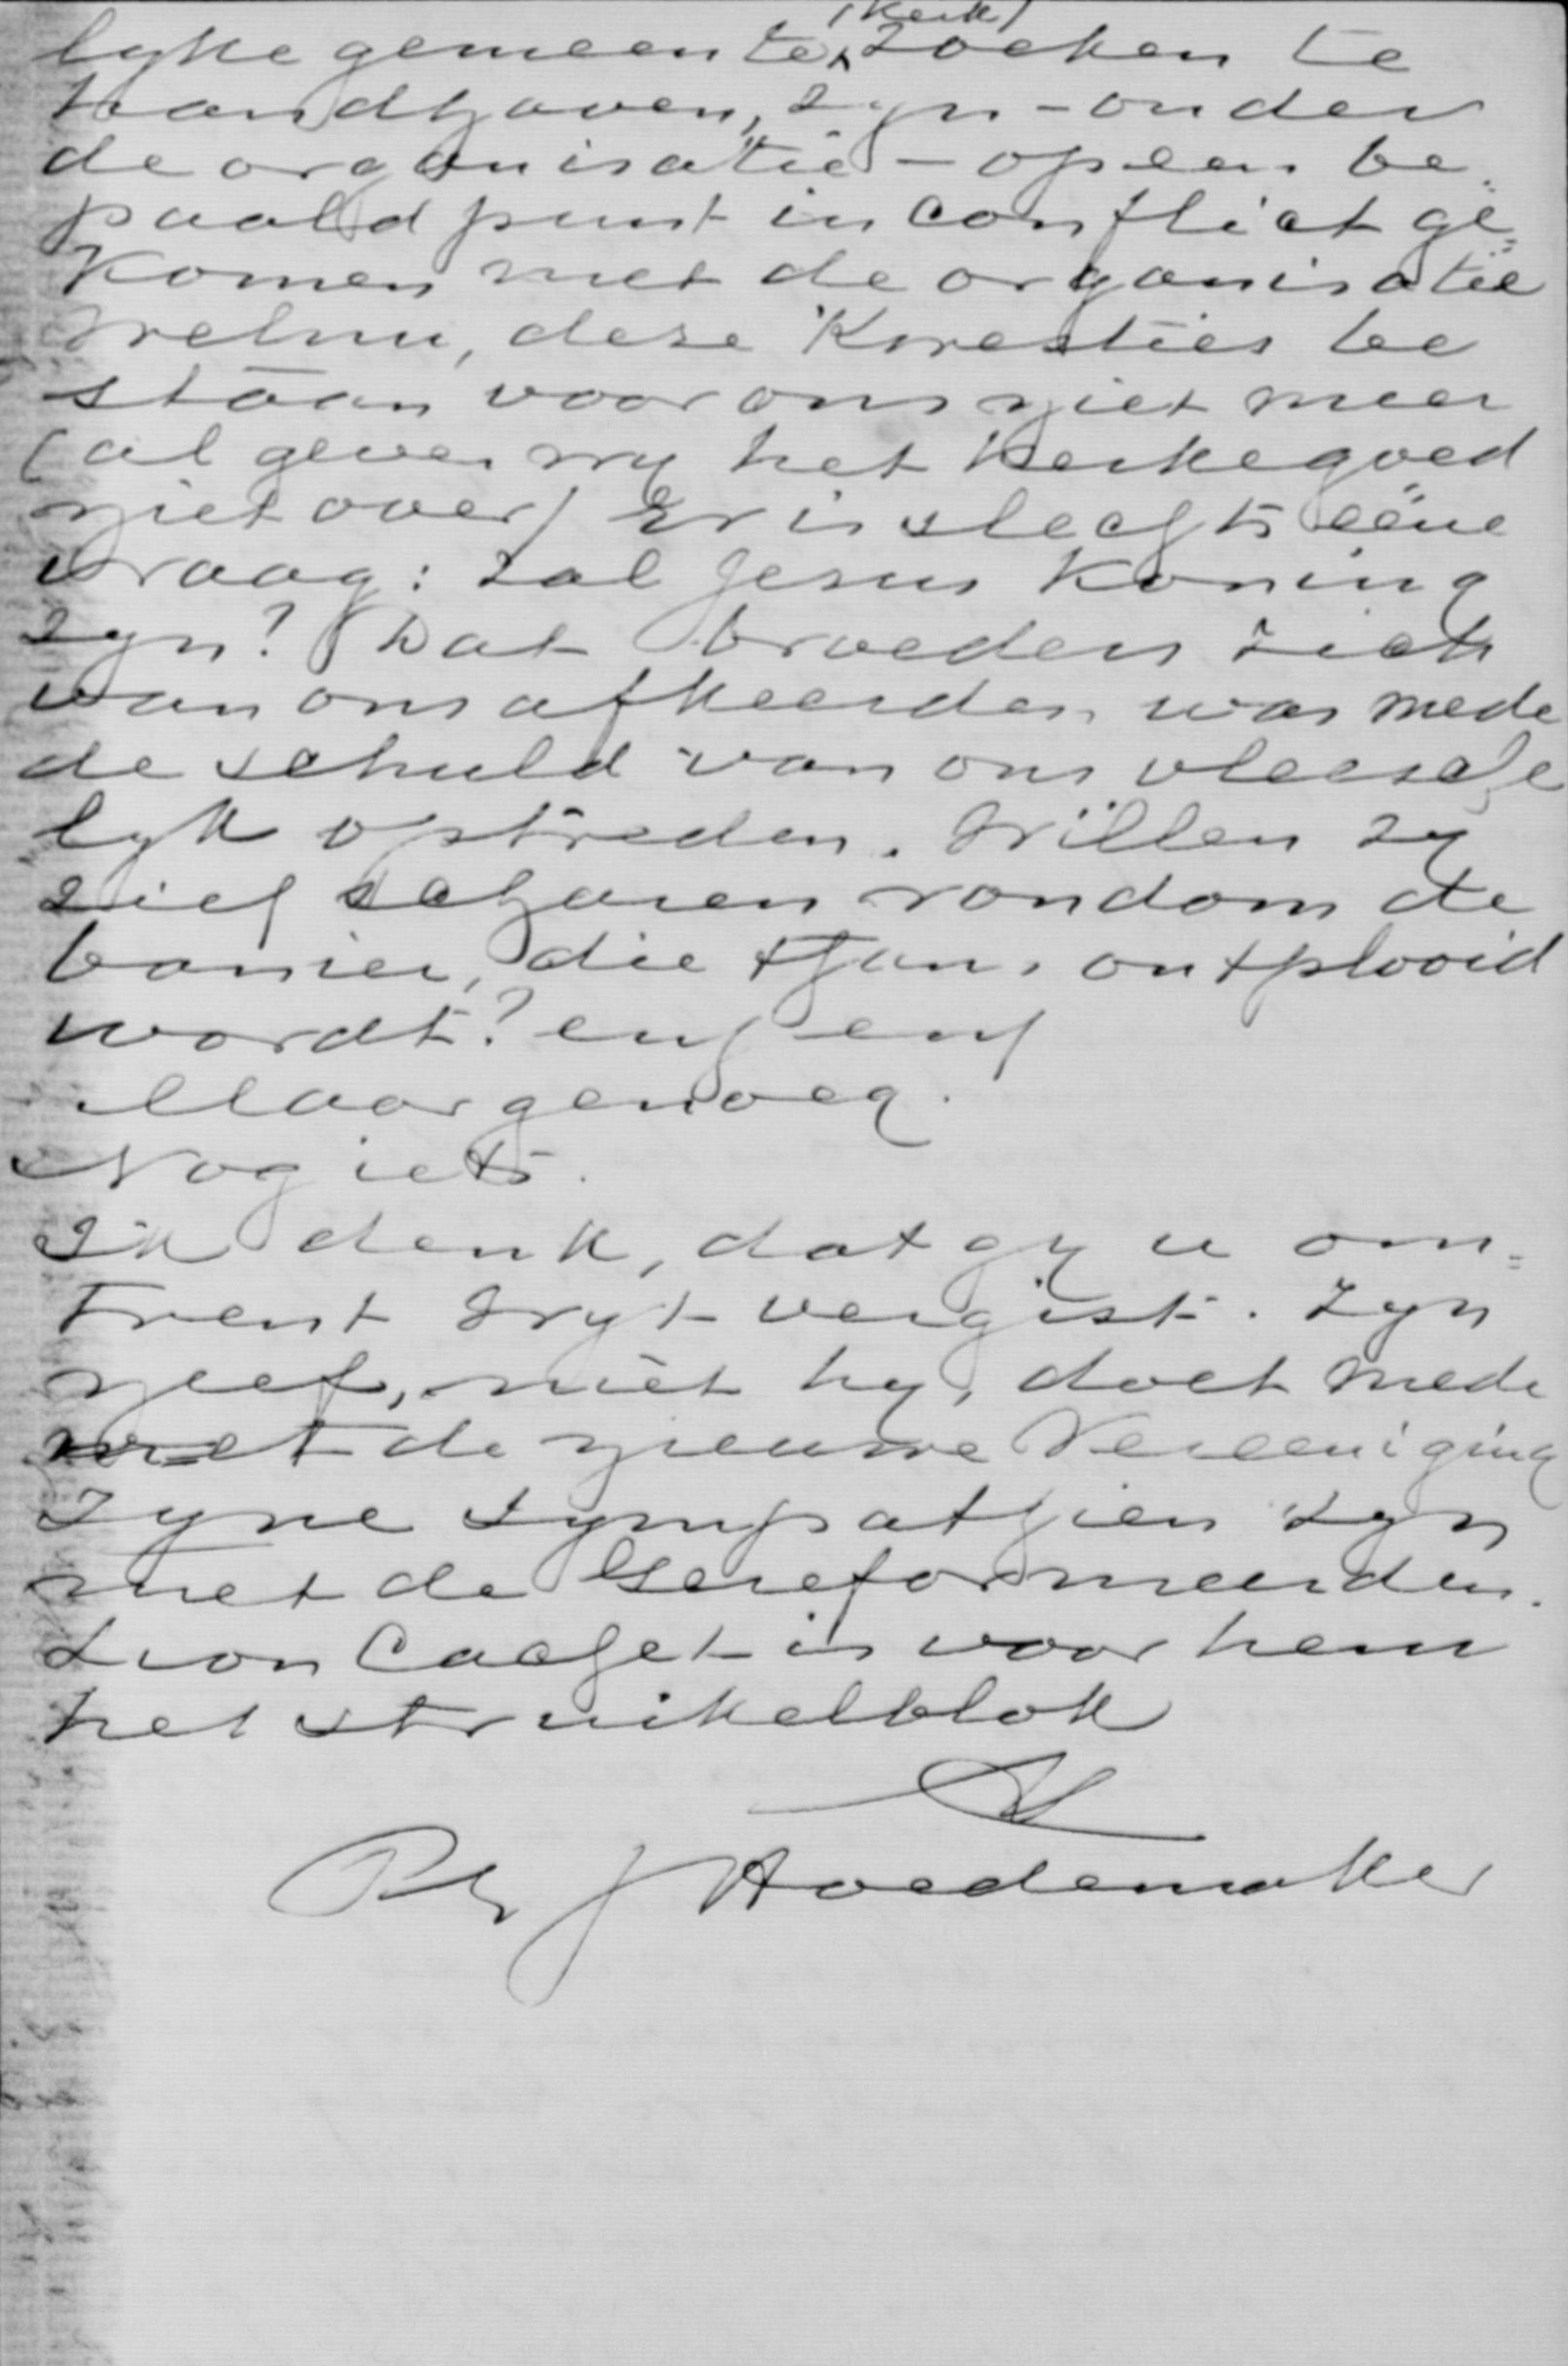 (kerk)
lyke gemeente, zoeken te
handhaven, zyn - onder
de organisatie - op een be-
paald punt in conflict ge=
komen met de organisatie
Welnu, deze kwesties be
staan voor ons niet meer
(al geven wy het kerkegoed
niet over) Er is slechts ééne
vraag: zal Jezus Koning
zyn? Dat broeders zich
van ons afkeerden was mede
de schuld van ons vleesche
lyk optreden. Willen zy
zich scharen rondom de
banier, die thans ontplooid
wordt? enz enz
Maar genoeg.
Nog iets.
Ik denk, dat gy u om=
trent Wyt vergist. Zyn
neef, niet hy, doet mede
met de nieuwe Vereeniging
Zyne sympathien zyn
met de Gereformeerden.
Lion Cachet is voor hem
het struikelblok
Ph J Hoedemaker